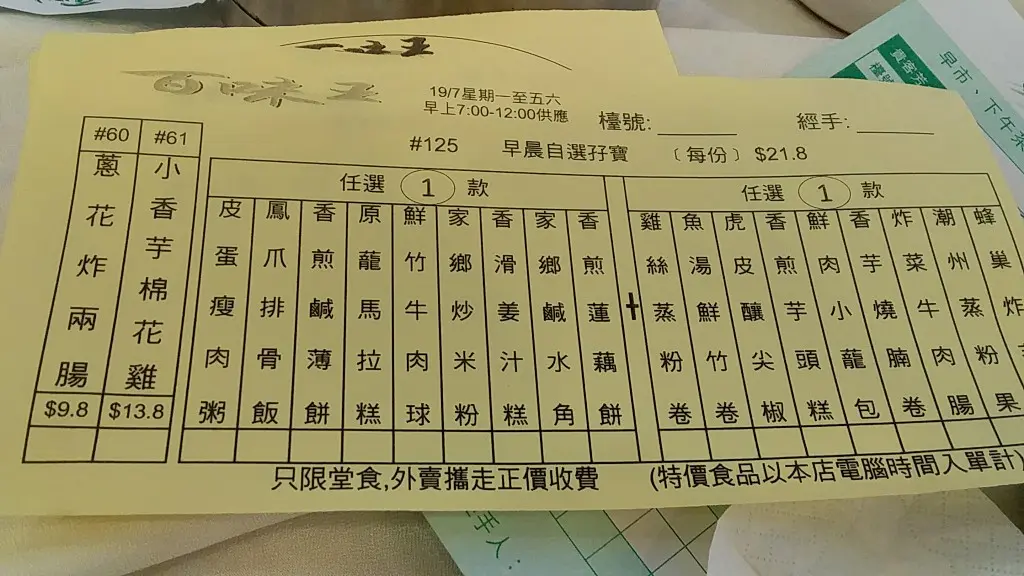 百味王
19/7星期一至五六
早上7:00-12:00供應
檯號:
經手:
#125 早晨自選孖寶 〔每份〕 $21.8
#60
蔥花炸兩腸
$9.8
#61
小香芋棉花雞
$13.8
任選 1 款
皮蛋瘦肉粥
鳳爪排骨飯
香煎鹹薄餅
原龍馬拉糕
鮮竹牛肉球
家鄉炒米粉
香滑姜汁糕
家鄉鹹水角
香煎蓮藕餅
+
任選 1 款
雞絲蒸粉卷
魚湯鮮竹卷
虎皮釀尖椒
香煎芋頭糕
鮮肉小龍包
香芋燒腩卷
炸菜牛肉腸
潮州蒸粉果
蜂巢炸
只限堂食,外賣攜走正價收費
(特價食品以本店電腦時間入單計)
早市、下午茶
手人: